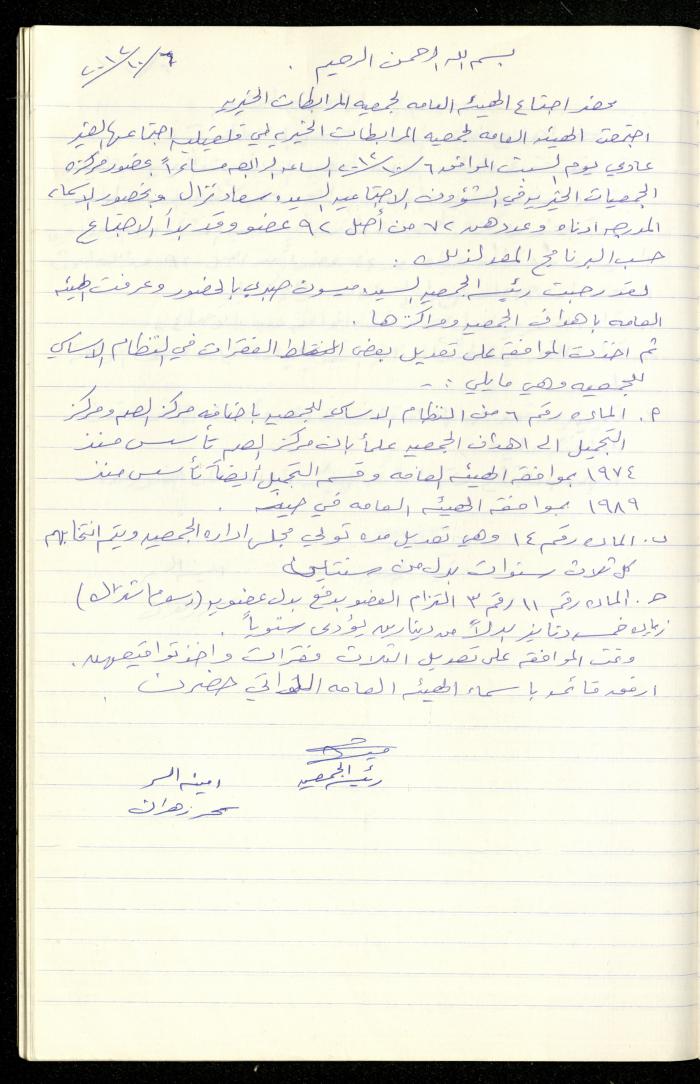 بسم الله الرحمن الرحيم .
محضر اجتماع الهيئه العامه لجمعيه المرابطات الخيريه
اجتمعت الهيئه العامه لجمعيه المرابطات الخيريه في قلقيليه اجتماعها الغير
عادي يوم السبت الموافق ٦/١٠/٢٠١٢ الساعه الرابعه مساءاً بحضور مركزه
الجمعيات الخيريه في الشؤون الاجتماعيه السيده سعاد نزال وبحضور الاسماء
المدرجه ادناه وعددهن ٧٢ من أصل ٩٢ عضو وقد بدأ الاجتماع
حسب البرنامج المعد لذلك :
لقد رحبت رئيسه الجمعيه السيده ميسون صبري بالحضور وعرفت الهيئه
العامه باهداف الجمعيه ومراكزها .
ثم اخذت الموافقة على تعديل بعض الفقرات في النظام الاساسي
للجمعيه وهي مايلي :-
٢. الماده رقم ٦ من النظام الاساسي للجمعيه باضافه مركز الصم ومركز
التجميل الى اهداف الجمعيه علماً بان مركز الصم تأسس منذ
١٩٧٤ بموافقه الهيئه العامه وقسم التجميل أيضاً تأسس منذ
١٩٨٩ بموافقه الهيئه العامه في حينه .
ب. الماده رقم ١٤ وهي تعديل مده تولي مجلس اداره الجمعيه ويتم انتخابهم
كل ثلاث سنوات بدل من سنتين
ح. الماده رقم ١١ رقم ٣ التزام العضو بدفع بدل عضويه (رسوم اشتراك)
زياده خمسه دنانير بدلاً من دينارين يؤدى سنوياً .
وتمت الموافقه على تعديل الثلاث فقرات واخذ تواقيعهن .
ارفق قائمه باسماء الهيئه العامه اللواتي حضرن .
رئيسه الجمعيه
امينه السر
سحر زهران